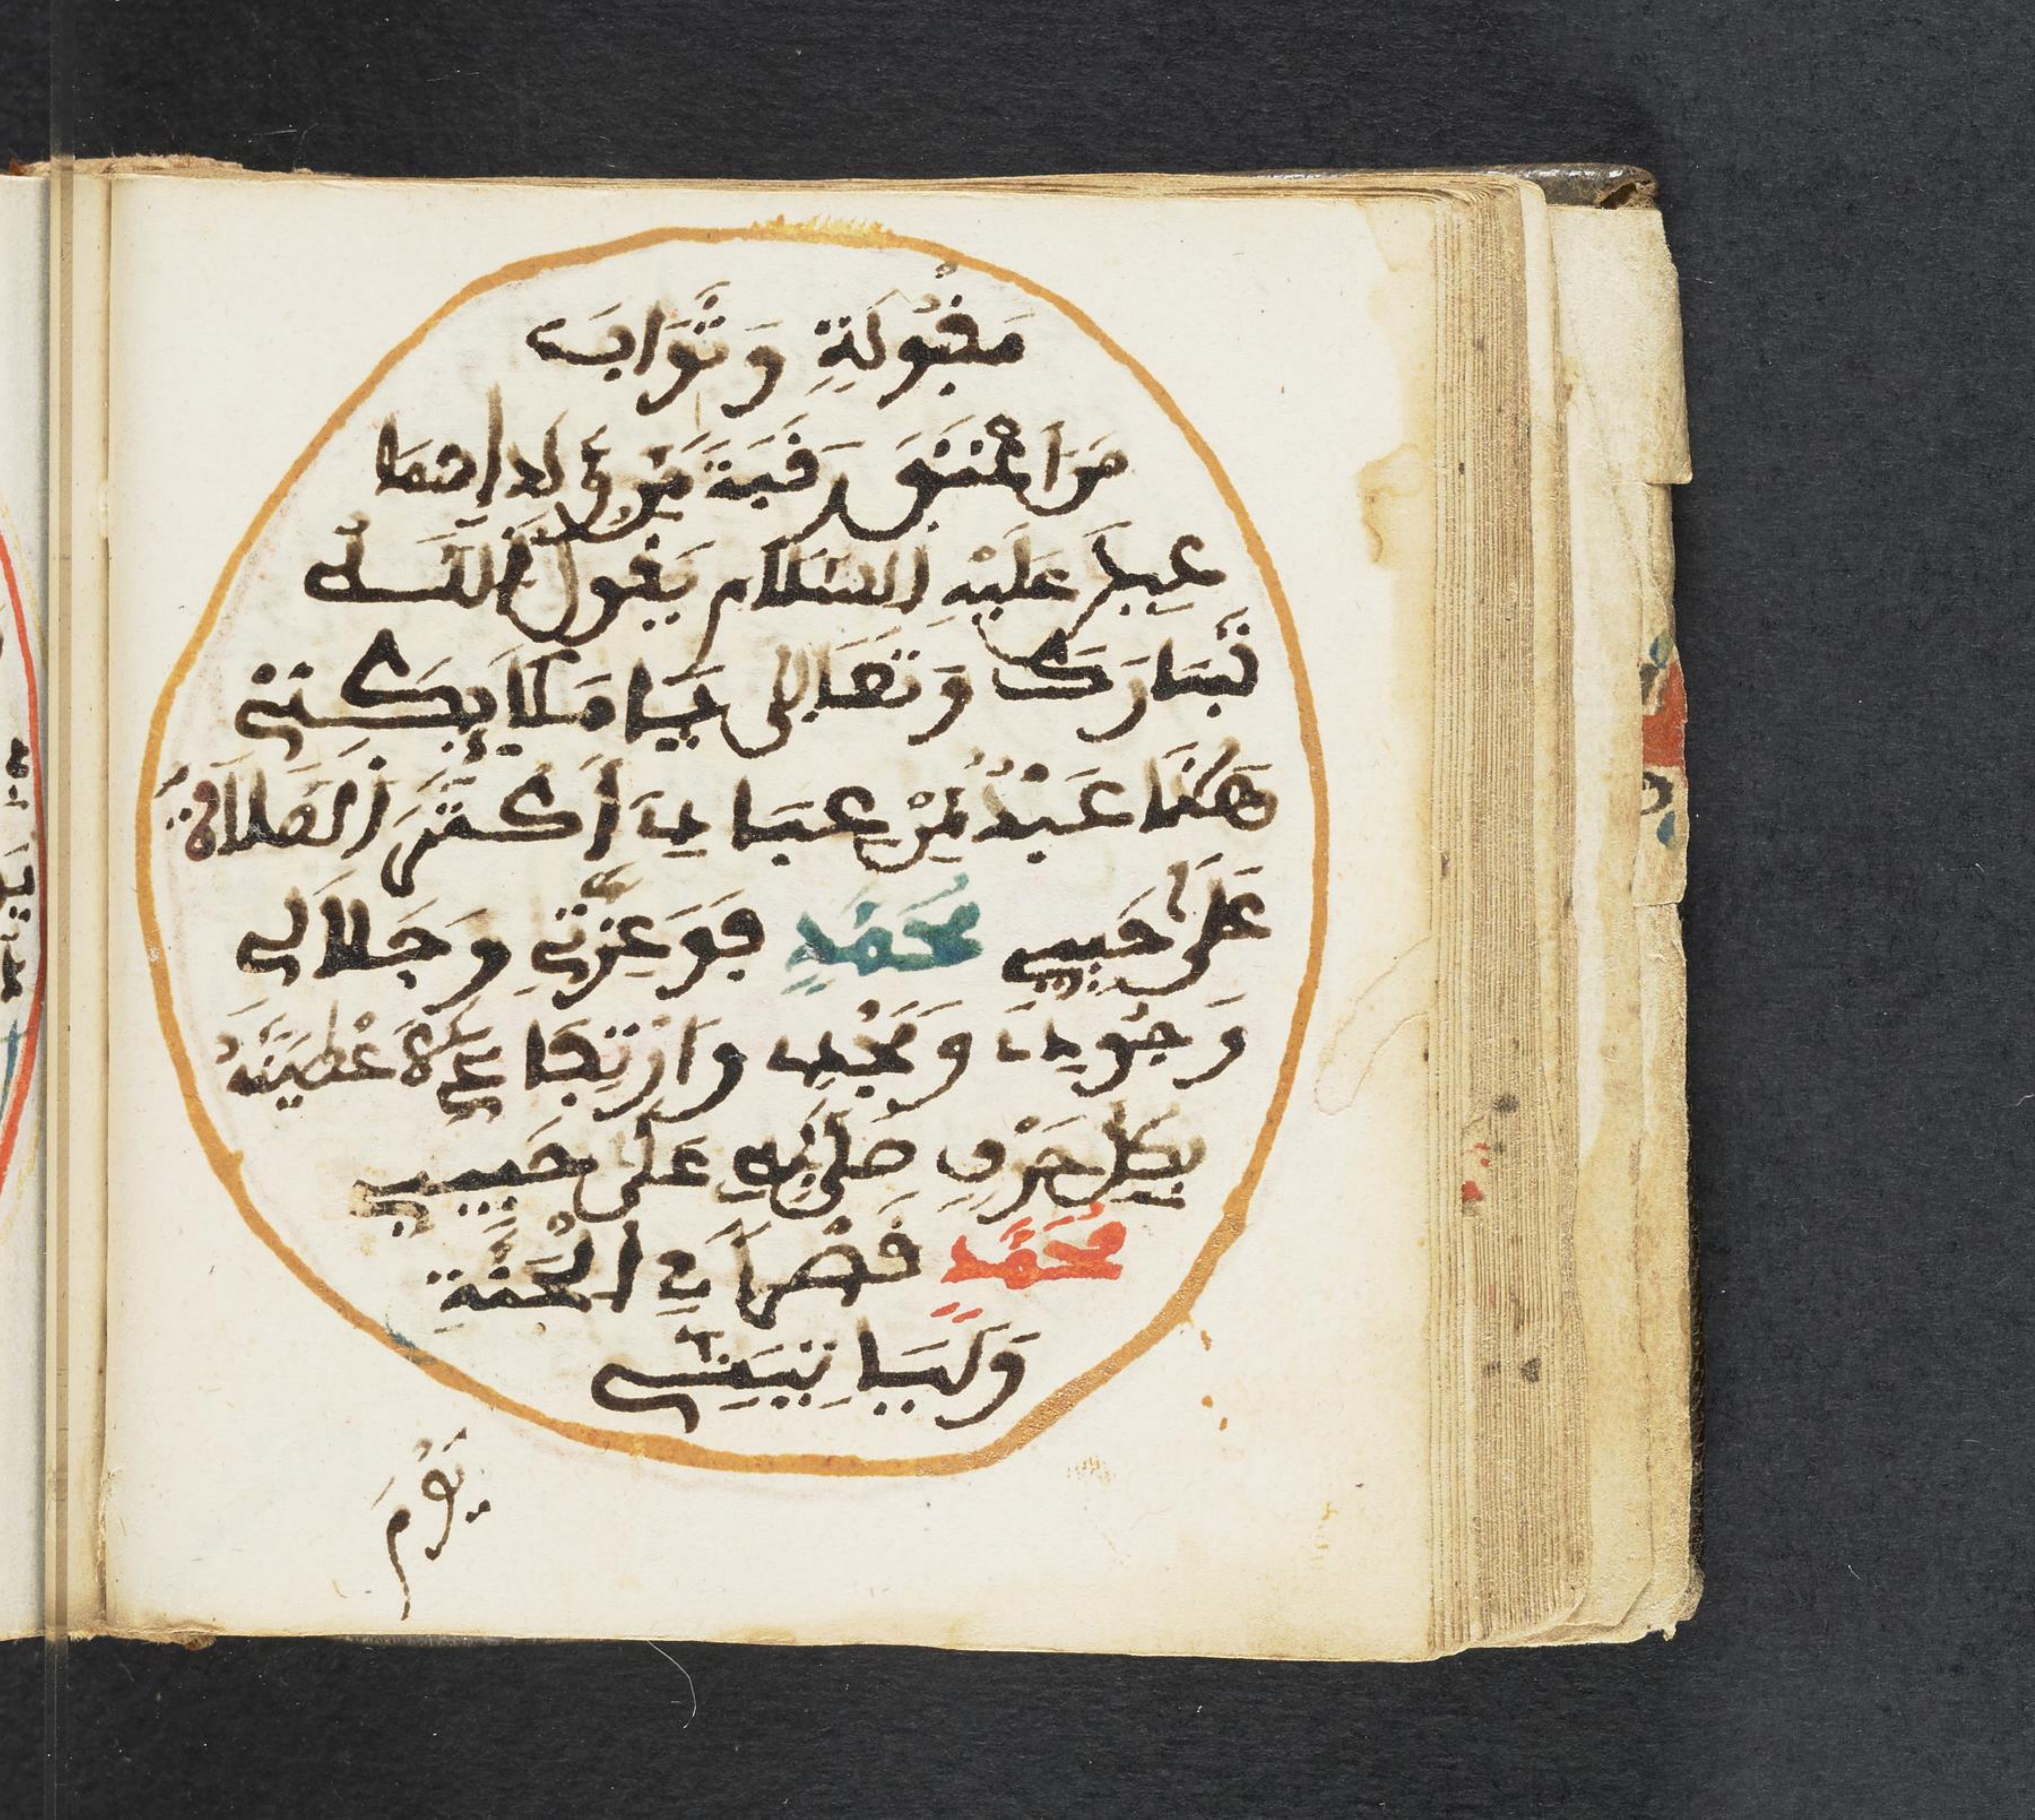 مَقْبُولَةٍ وَثَوَابَ
مَنَ اعْتَقَ رَقَبَةً مِنْ وُلْدِ اسْمَا
عِيلَ عَلَيْهِ السَّلَام يَقُولُ اللَّهُ
تَبَارَكَ وَتَعَالَى يَا مَلَايِكَتِي
هَذَا عَبْدٌ مِنْ عِبَادِي أَكْثَرَ الصَّلَاةَ
عَلَى حَبِيبِي مُحَمَّدٍ فَوَعِزَّتِي وَجَلَالِي
وَجُودِي وَمَجْدِي وَارْتِفَاعِي لَأُعْطِيَنَّهُ
بِكُلِّ حَرْفٍ صَلَّى بِهِ عَلَى حَبِيبِي
مُحَمَّدٍ قَصْراً فِي الْجَنَّةِ
وَلَيَاتِيَنِّي
يَوْمَ